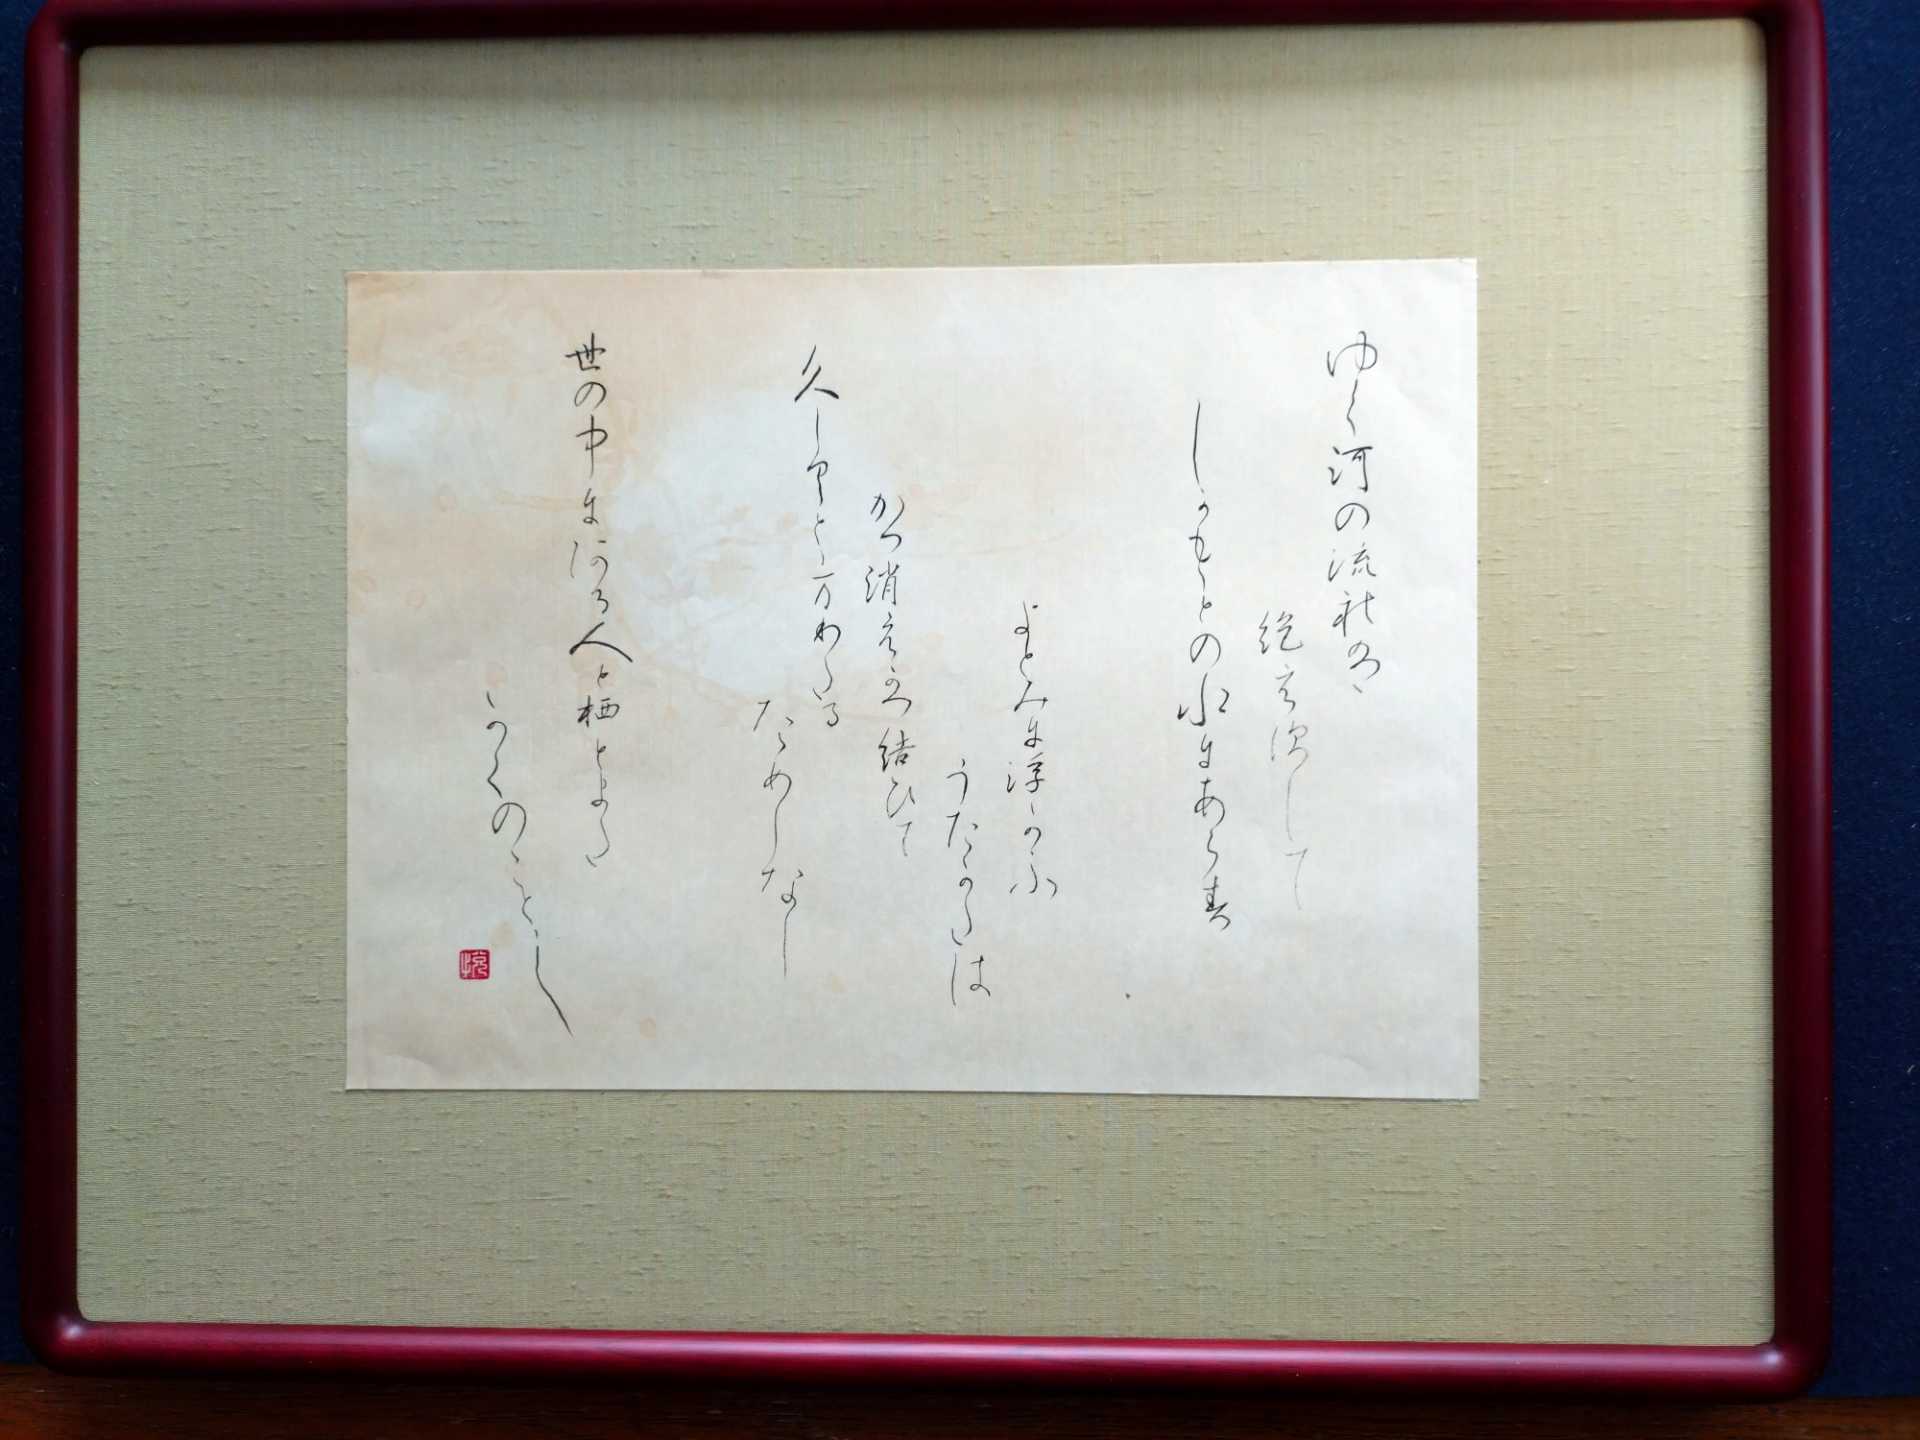 ゆく河の流れは
絶えずして
しかももとの水にあらず
よどみに浮かふ
うたかたは
かつ消えかつ結ひて
久しくとゝまりたる
ためしなし
世の中にある人と栖とまた
かくのことし